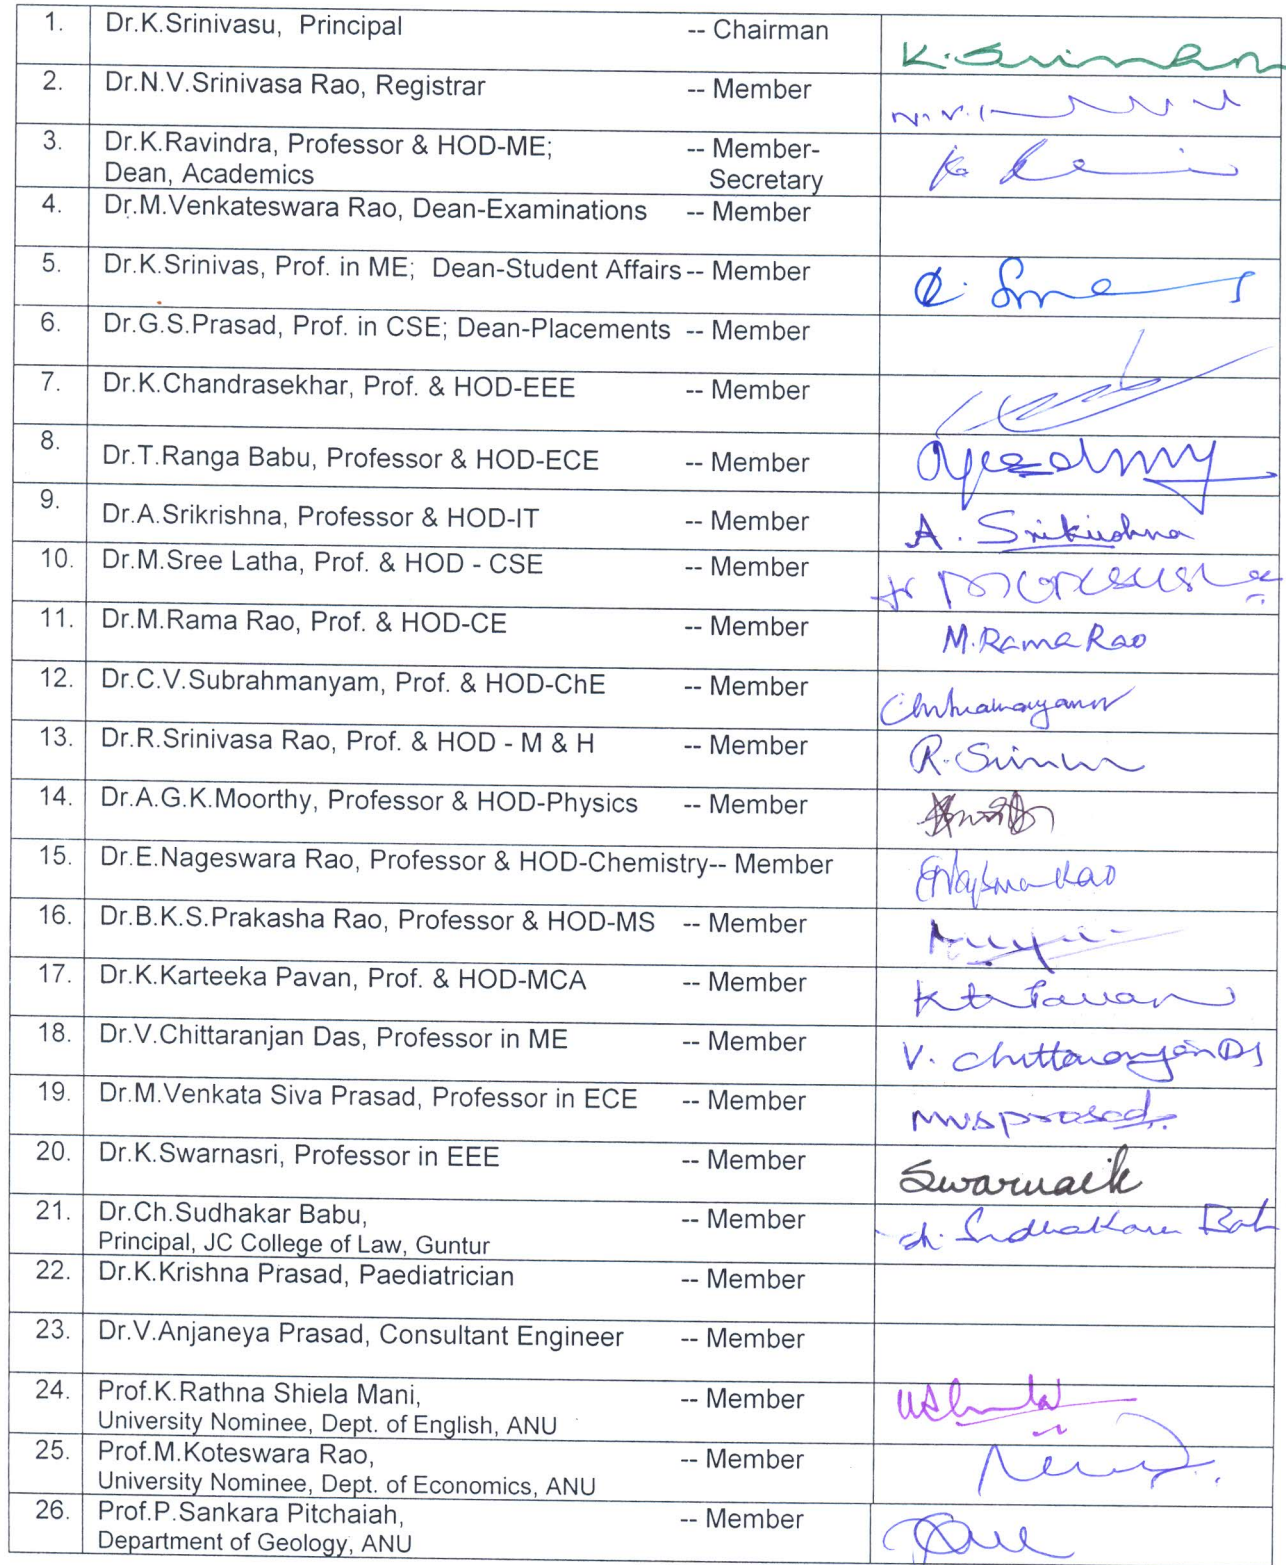 1. Dr.K.Srinivasu, Principal -- Chairman K.
2. Dr.N.V.Srinivasa Rao, Registrar -- Member N.V.
3. Dr.K.Ravindra, Professor & HOD-ME; -- Member-
Dean, Academics Secretary
4. Dr.M.Venkateswara Rao, Dean-Examinations -- Member
5. Dr.K.Srinivas, Prof. in ME; Dean-Student Affairs -- Member
6. Dr.G.S.Prasad, Prof. in CSE; Dean-Placements -- Member
7. Dr.K.Chandrasekhar, Prof. & HOD-EEE -- Member
8. Dr.T.Ranga Babu, Professor & HOD-ECE -- Member
9. Dr.A.Srikrishna, Professor & HOD-IT -- Member A. Srikrishna
10. Dr.M.Sree Latha, Prof. & HOD - CSE -- Member
11. Dr.M.Rama Rao, Prof. & HOD-CE -- Member M.Rama Rao
12. Dr.C.V.Subrahmanyam, Prof. & HOD-ChE -- Member
13. Dr.R.Srinivasa Rao, Prof. & HOD - M & H -- Member R.
14. Dr.A.G.K.Moorthy, Professor & HOD-Physics -- Member
15. Dr.E.Nageswara Rao, Professor & HOD-Chemistry-- Member Rao
16. Dr.B.K.S.Prakasha Rao, Professor & HOD-MS -- Member
17. Dr.K.Karteeka Pavan, Prof. & HOD-MCA -- Member Pavan
18. Dr.V.Chittaranjan Das, Professor in ME -- Member V. Chittaranjan Das
19. Dr.M.Venkata Siva Prasad, Professor in ECE -- Member MVSPrasad.
20. Dr.K.Swarnasri, Professor in EEE -- Member
21. Dr.Ch.Sudhakar Babu, -- Member Ch. Sudhakar Bab
Principal, JC College of Law, Guntur
22. Dr.K.Krishna Prasad, Paediatrician -- Member
23. Dr.V.Anjaneya Prasad, Consultant Engineer -- Member
24. Prof.K.Rathna Shiela Mani, -- Member
University Nominee, Dept. of English, ANU
25. Prof.M.Koteswara Rao, -- Member
University Nominee, Dept. of Economics, ANU
26. Prof.P.Sankara Pitchaiah, -- Member
Department of Geology, ANU